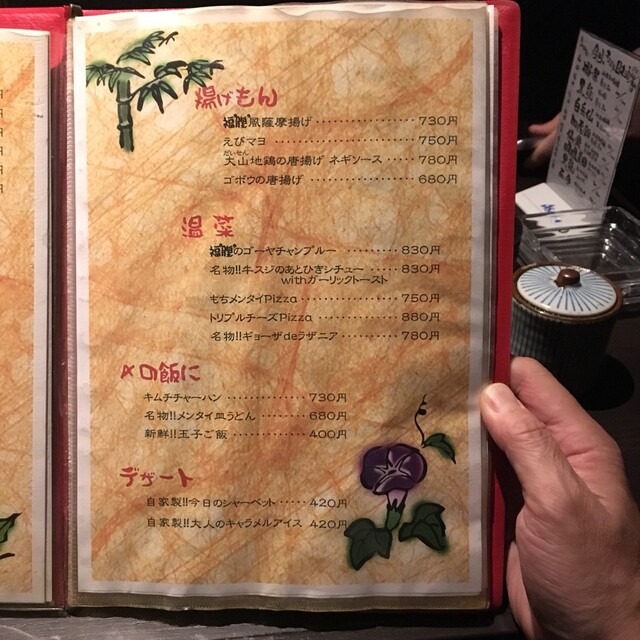 揚げもん
風薩摩揚げ ················· 730円
えびマヨ ························ 750円
だいせん
大山地鶏の唐揚げ ネギソース ···· 780円
ゴボウの唐揚げ ·················· 680円
温菜
のゴーヤチャンプルー ········· 830円
名物!!牛スジのあとひきシチュー ····· 830円
withガーリックトースト
もちメンタイPizza ·············· 750円
トリプルチーズPizza ············ 880円
名物!!ギョーザdeラザニア ········ 780円
〆の飯に
キムチチャーハン ·············· 730円
名物!!メンタイ皿うどん ········ 680円
新鮮!!玉子ご飯 ············· 400円
デザート
自家製!!今日のシャーベット ····· 420円
自家製!!大人のキャラメルアイス 420円